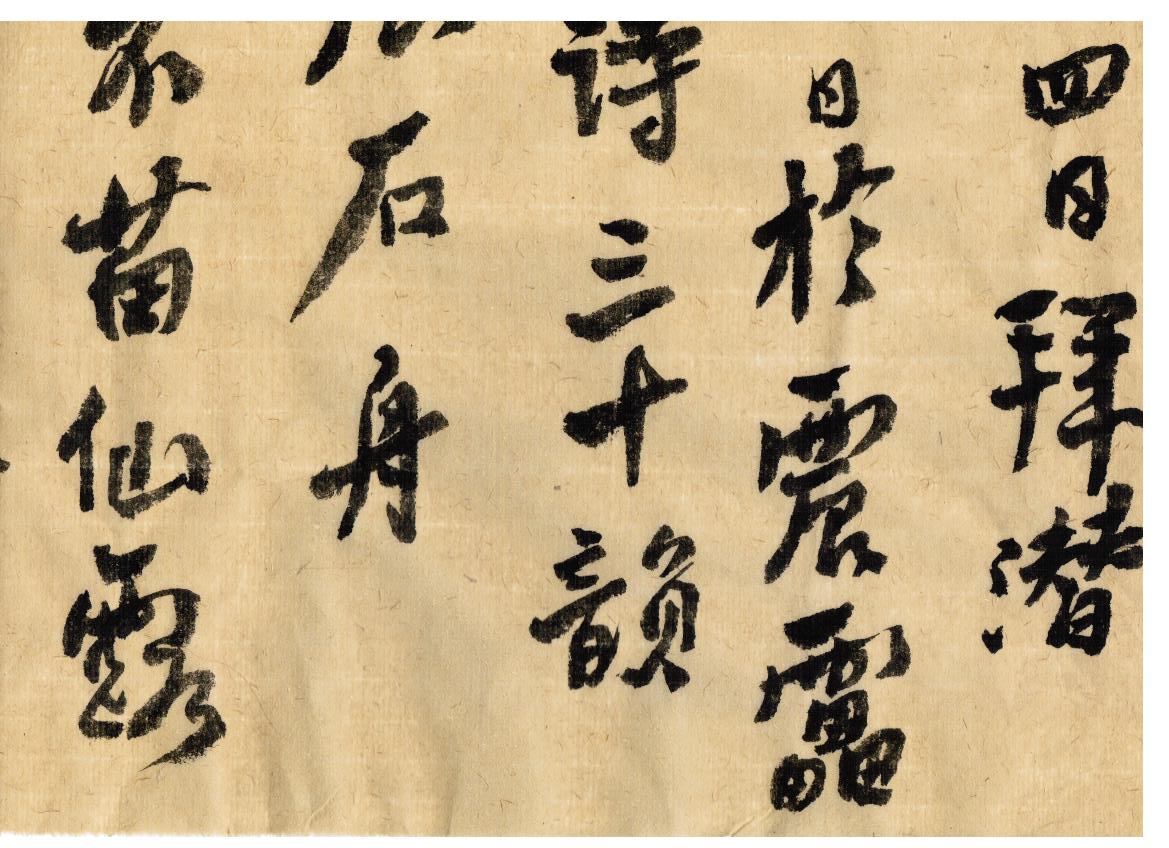 四日拜潜
日於震靁
詩三十韻
石舟
苗仙露